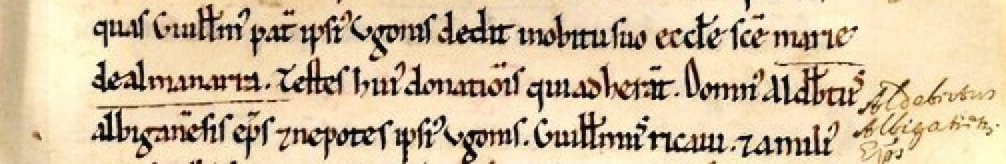 quas Guill̄mꝰ pat̄ ipsiꝰ vgonis dedit inobitu suo eccl̄e sc̄e marie
de almanarra. Testes huiꝰ donatiōis qui adherāt. Domnꝰ Aldb̄tuˢ
albigan̄esis ep̄s ⁊ nepotes ipsiꝰ vgonis. Guill̄muˢ ricaui. ⁊ amiliꝰ
Aldebertus
Ep̄s